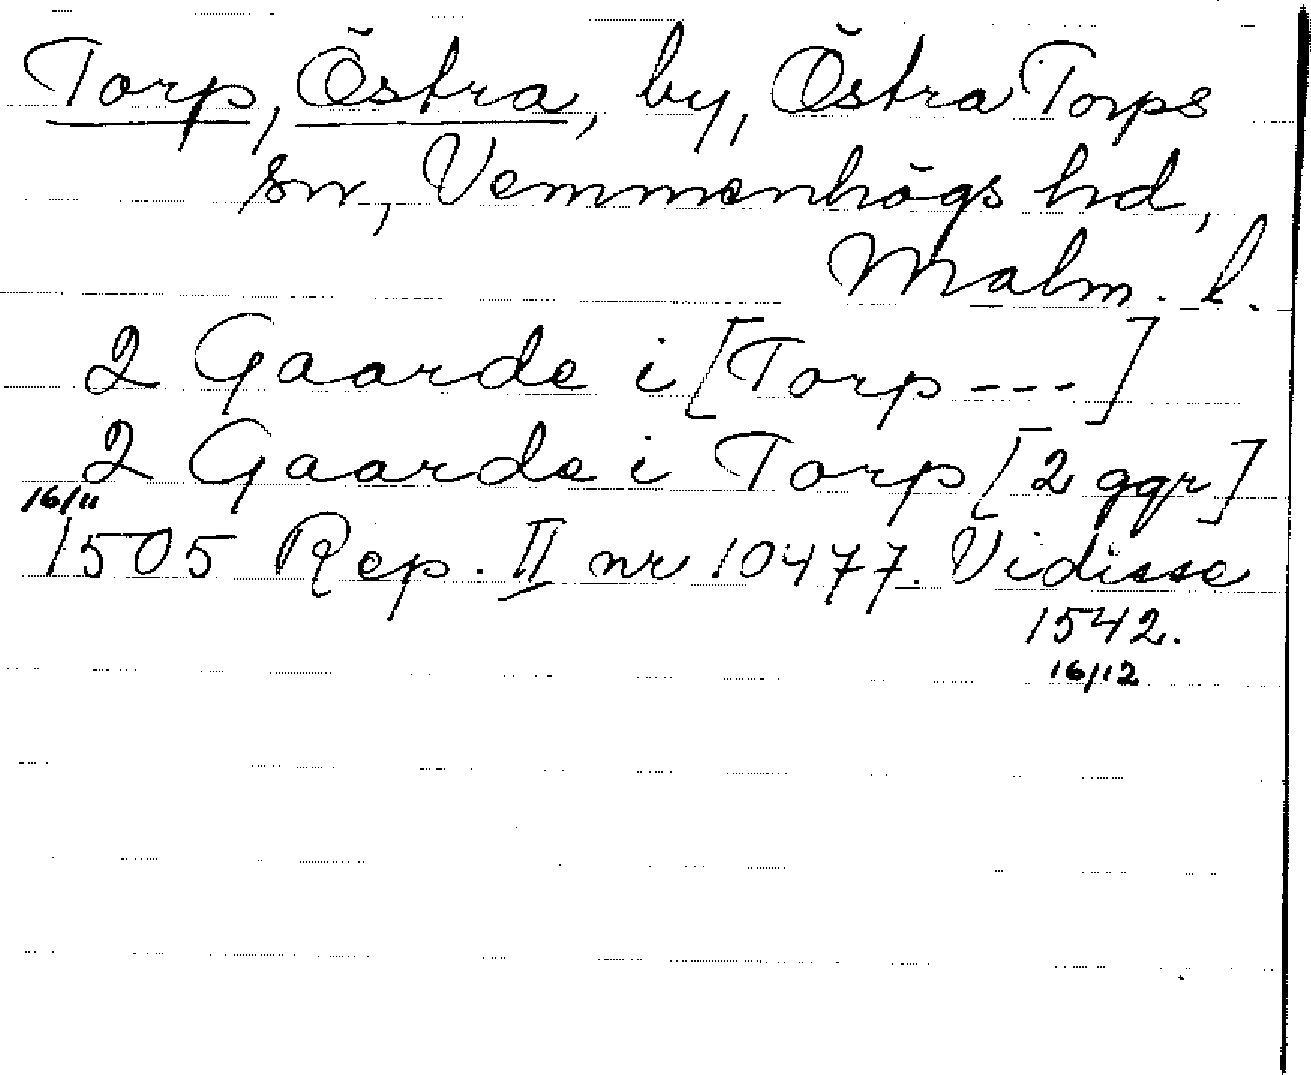 Torp, Östra, by, Östra Torps
sn, Vemmenhögs hd,
Malm. l.
2 Gaarde i [Torp ---]
2 Gaarde i Torp [2 ggr]
16/11
1505 Rep. II nr 10477. Vidisse
1542.
16/12